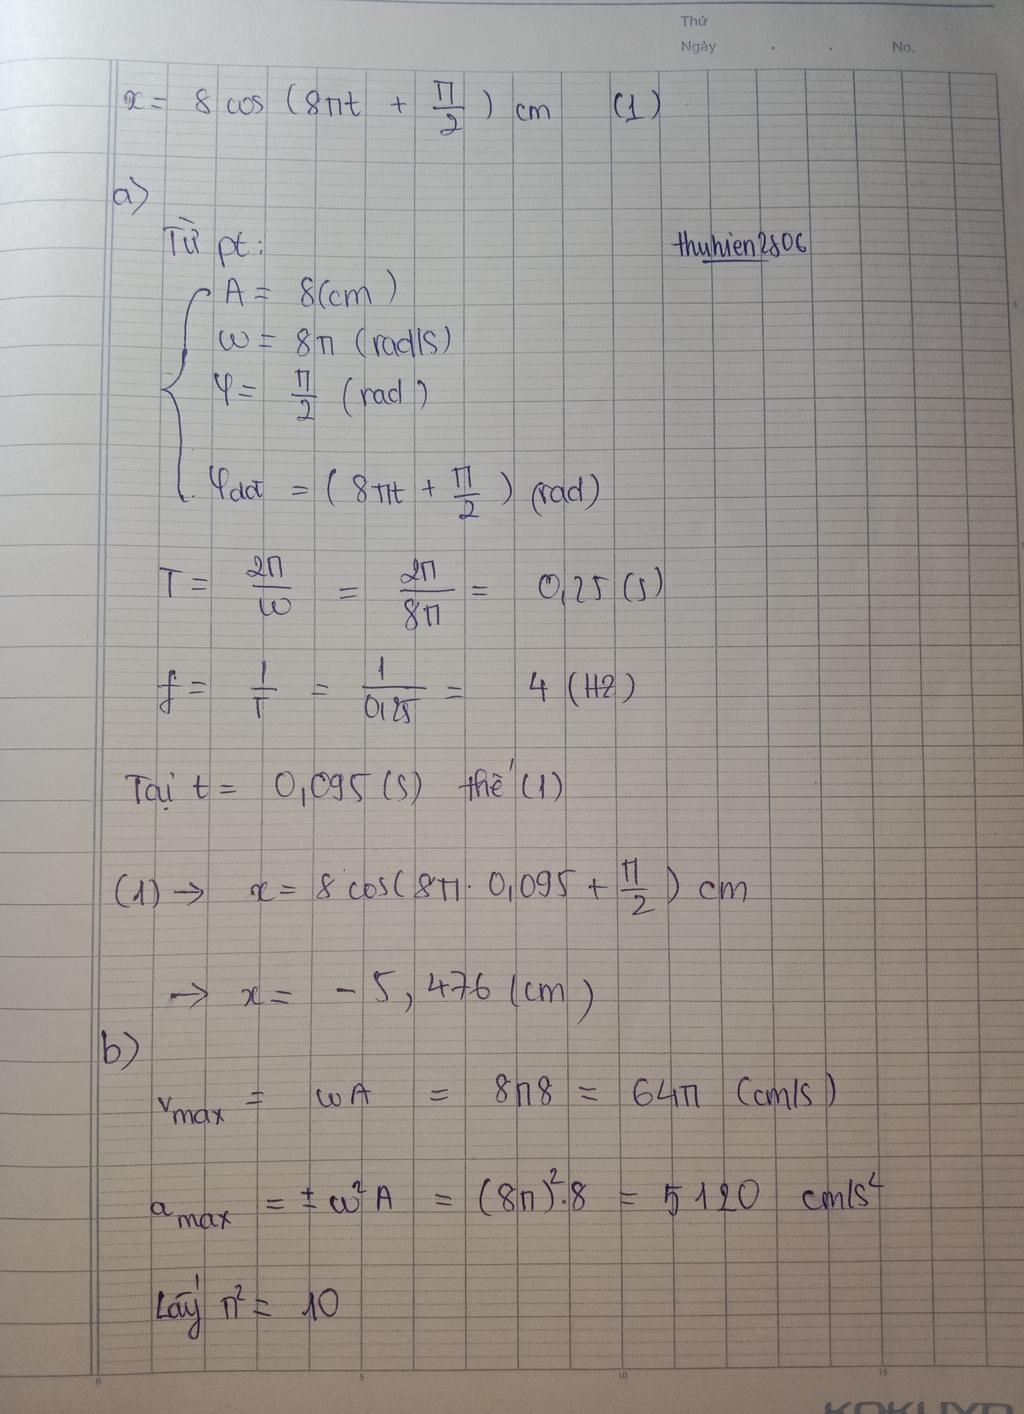 Thứ
Ngày . . No.
x = 8 cos (8πt + π/2) cm (1)
a)
Từ pt:
thuhien2806
A = 8(cm)
ω = 8π (rad/s)
φ = π/2 (rad)
φdđ = (8πt + π/2) (rad)
T = 2π/ω = 2π/8π = 0,25 (s)
f = 1/T = 1/0,25 = 4 (Hz)
Tại t = 0,095 (s) thế (1)
(1) → x = 8 cos(8π. 0,095 + π/2) cm
→ x = - 5,476 (cm)
b)
vmax = ωA = 8π8 = 64π (cm/s)
amax = ± ω²A = (8π)².8 = 5120 cm/s²
Lấy π² = 10
0 5 10 15
KOKUYO